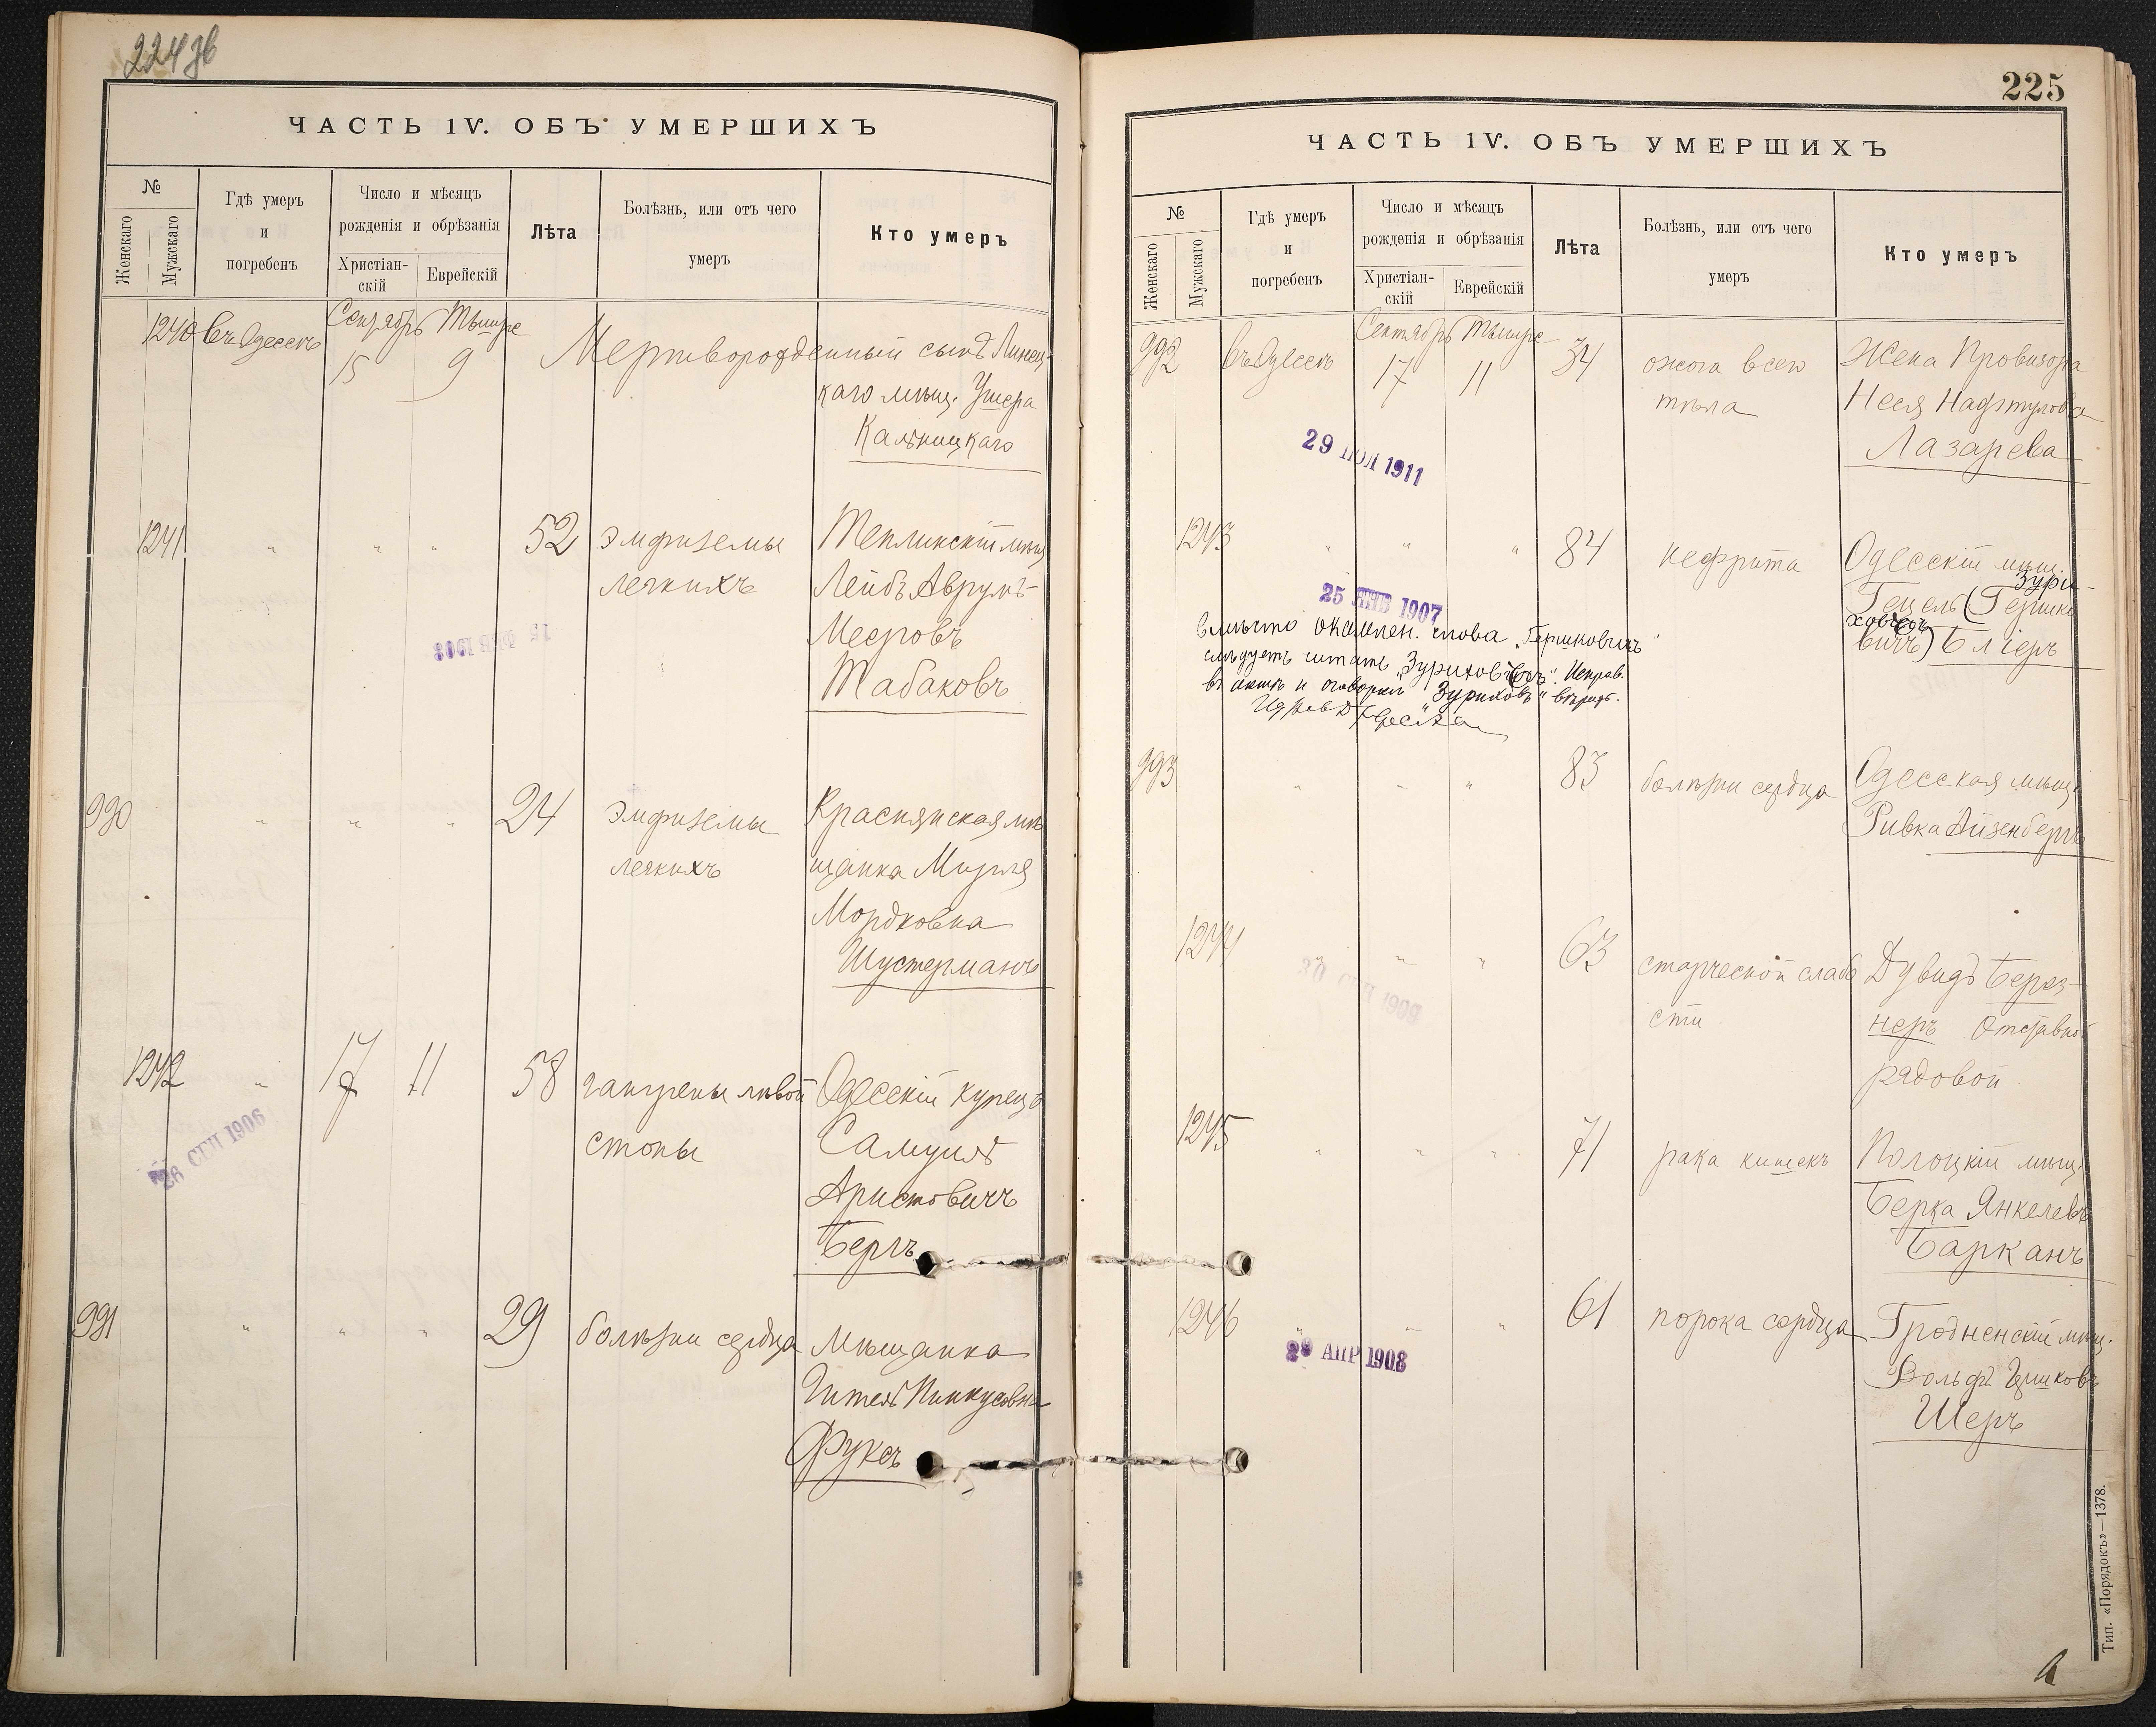 224 об
ЧАСТЬ IV. ОБЪ УМЕРШИХЪ
№
Женскаго
Мужскаго
Гдѣ умеръ
и
погребенъ
Число и мѣсяцъ
рожденія и обрѣзанія
Христіан-
скій
Еврейскій
Лѣта
Болѣзнь, или отъ чего
умеръ
Кто умеръ
1240 въ Одессѣ Сентябрь Тышре
15 9 Мертворожденный сынъ Линец-
каго мѣщ. Ушера
Кальницкаго
1241 " " " 52 эмфиземы Теплинскій мѣщ
легкихъ Лейбъ Аврумъ-
Мееровъ
Табаковъ
990 " " " 24 эмфиземы Краснянская мѣ
легкихъ щанка Мирля
Мордковна
Шустерманъ
1242 " 17 11 58 гангрены лѣвой Одесскій купецъ
стопы Самуилъ
Аристовичъ
Бергъ
26 СЕП 1906
991 " " " 29 болѣзни сердца Мѣщанка
Гитель Пинкусовна
Фуксъ
225
ЧАСТЬ IV. ОБЪ УМЕРШИХЪ
№
Женскаго
Мужскаго
Гдѣ умеръ
и
погребенъ
Число и мѣсяцъ
рожденія и обрѣзанія
Христіан-
скій
Еврейскій
Лѣта
Болѣзнь, или отъ чего
умеръ
Кто умеръ
992 въ Одессѣ Сентябрь Тышре
17 11 34 ожога всего Жена Провизора
тѣла Неся Нафтулова
Лазарева
29 ІЮЛ 1911
1243 " " " 84 нефрита Одесскій мѣщ.
Зури-
Гецель (Гершко
ховъ
вичъ) Бліеръ
25 ЯНВ 1907
Вмѣсто слова "Гершковичъ"
слѣдуетъ читать "Зуриховъ". Исправ.
въ актѣ и оговорил "Зуриховъ" вѣрить.
993 " " " 83 болѣзни сердца Одесская мѣщ.
Ривка Айзенбергъ
1244 " " " 63 старческой слабо Дувидъ Берез-
сти неръ Отставной
рядовой
30 СЕП 1909
1245 " " " 71 рака кишекъ Полоцкій мѣщ.
Берка Янкелевъ
Барканъ
1246 " " " 61 порока сердца Гродненскій мѣщ.
Вольфъ Ицковъ
Шеръ
29 АПР 1908
Тип. «Порядокъ»—1378.